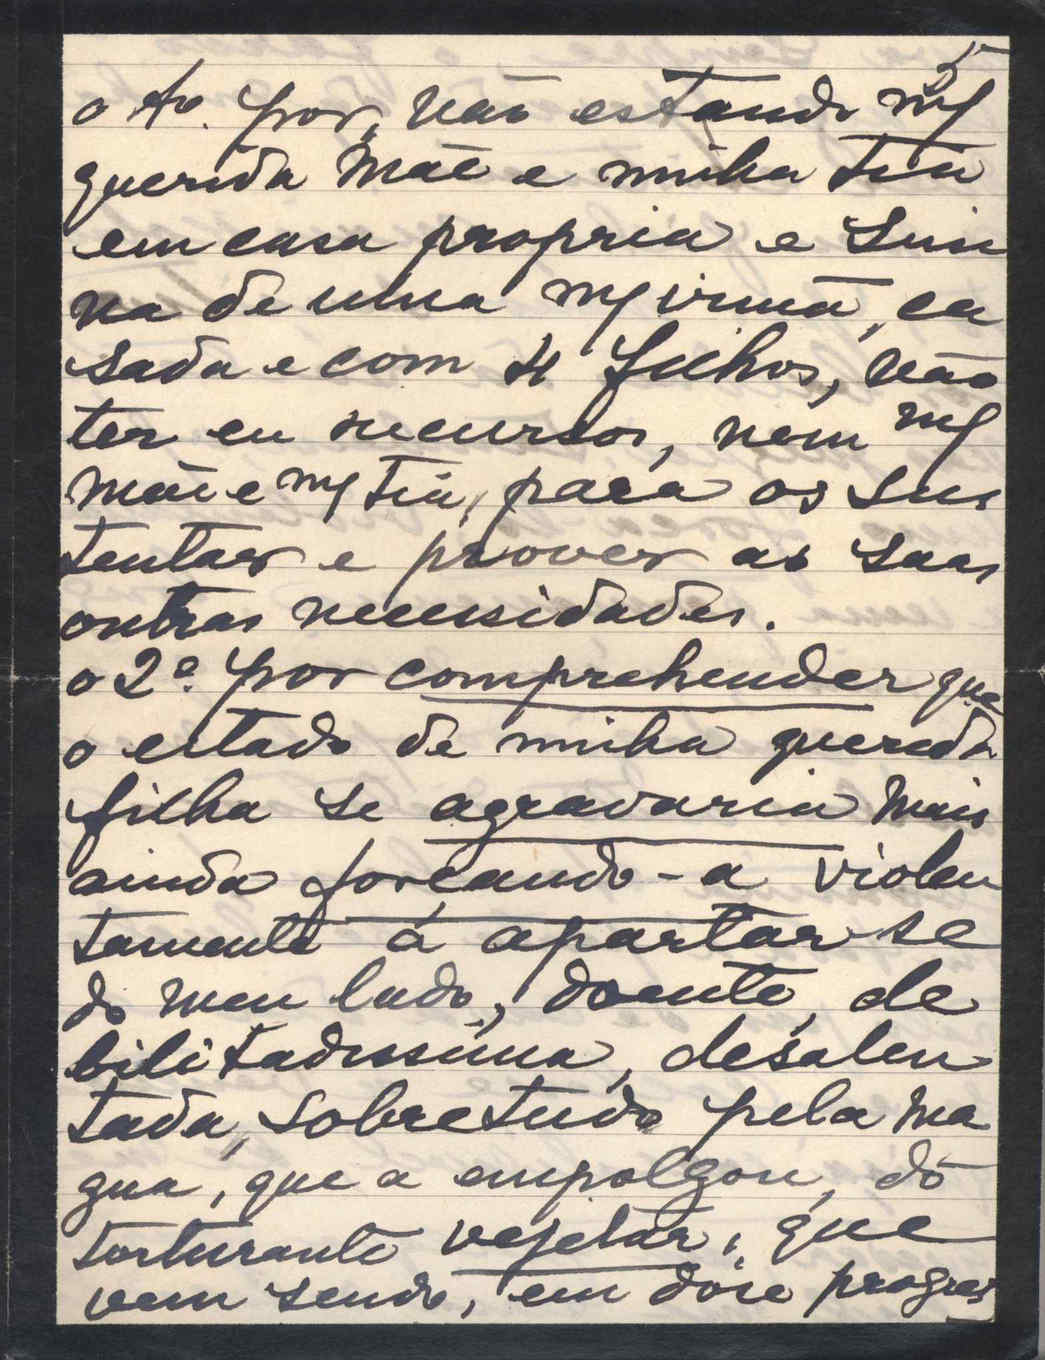 5
o 1º. por, não estando mª
querida Mãe e minha tia
em casa propria e sim
na de uma mª irmã, ca
sada e com 4 filhos, não
ter eu recursos, nem mª
Mãe e mª tia, para os sus
tentar e prover as suas
outras necessidades.
o 2º. por comprehender que
o estado de minha querida
filha se agravaria mais
ainda forçando-a violen
tamente á apartar-se
do meu lado, doente, de
bilitadissima, desalen
tada, sobretudo pela ma
gua, que a empolgou, do
torturante vejetar, que
vem sendo, em dóse progres